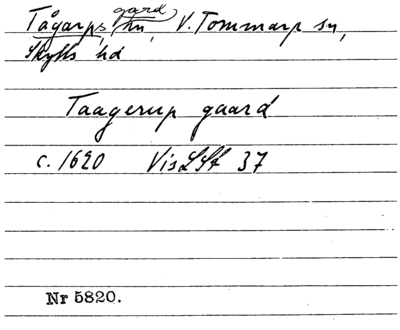 Tågarps gård hn, V. Tommarp sn,
Skytts hd
Taagerup gaard
c. 1620 VisLSt 37
Nr 5820.